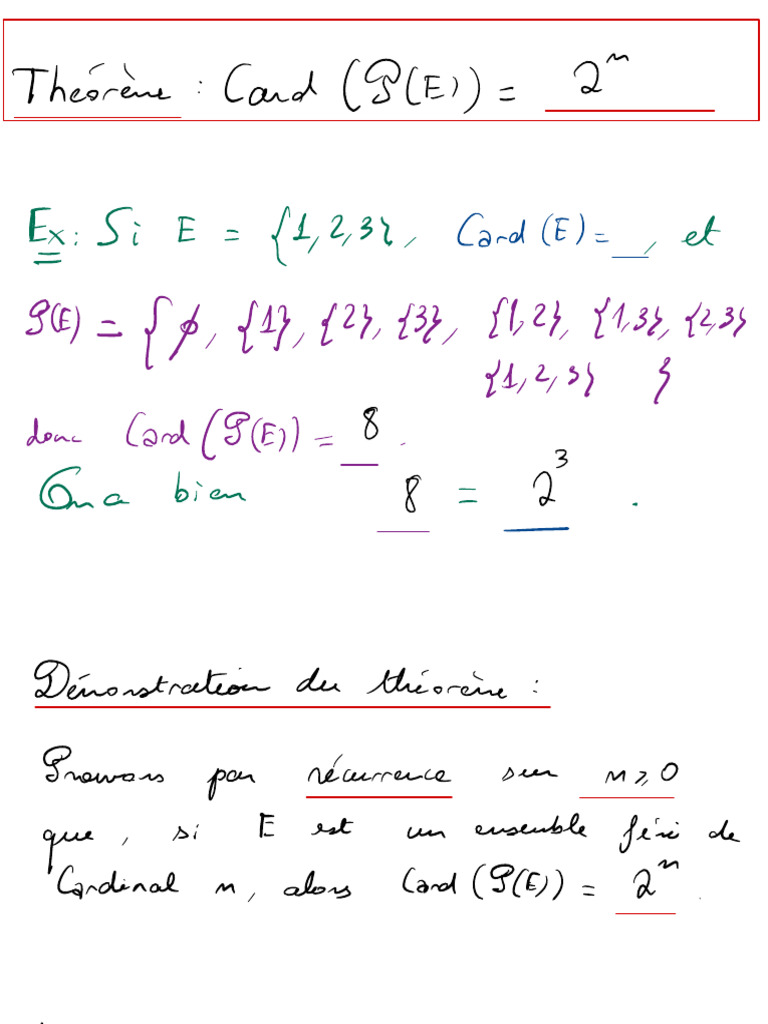 Théorème : Card (P(E)) = 2^n
Ex : Si E = {1, 2, 3}, Card (E) = __, et
P(E) = { ∅, {1}, {2}, {3}, {1, 2}, {1, 3}, {2, 3}
{1, 2, 3} }
donc Card (P(E)) = 8.
On a bien 8 = 2^3.
Démonstration du théorème :
Prouvons par récurrence sur n ⩾ 0
que, si E est un ensemble fini de
Cardinal n, alors Card (P(E)) = 2^n.